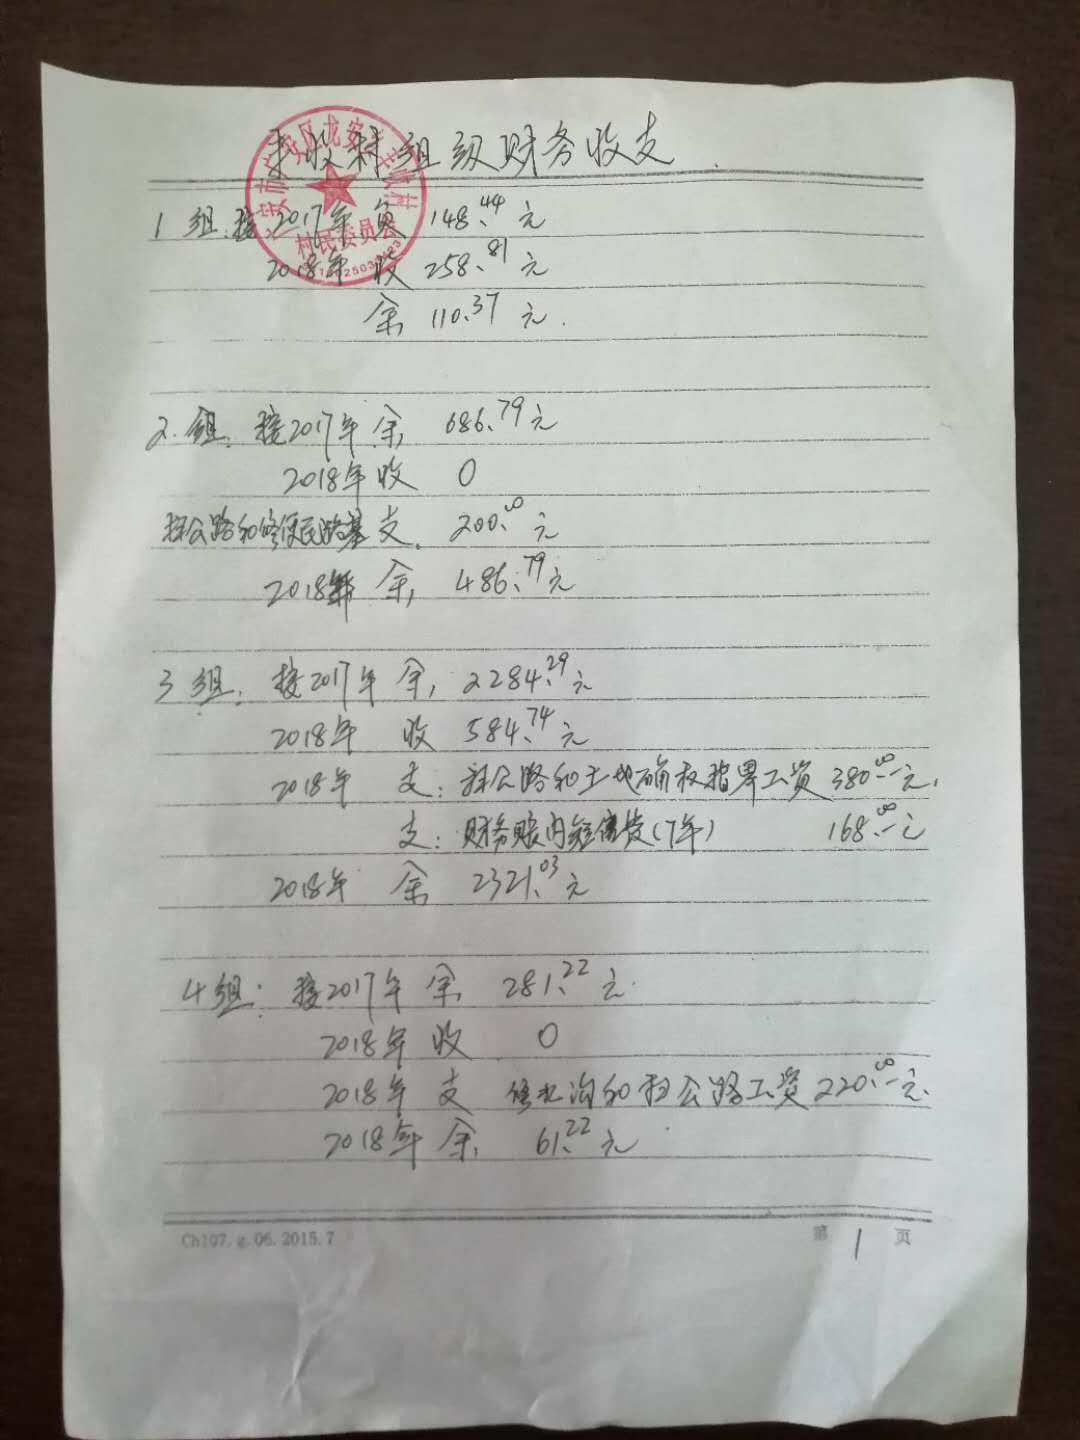 丰收村组级财务收支
村民委员会
1组:接2017年负 148.44元
2018年收 258.81元
余 110.37元.
2.组:接2017年余 686.79元
2018年收 0
扫公路和修便民路基支. 200.00元
2018年 余 486.79元
3组:接2017年余 2284.29元
2018年 收 584.74元
2018年 支:扫公路和土地确权指界工资380.00元.
支:财务账内短信费(7年) 168.00元
2018年 余 2321.03元
4组:接2017年余 281.22元
2018年收 0
2018年支 修水沟和扫公路工资220.00元.
2018年余 61.22元
Ch107.g.06.2015.7
第1页